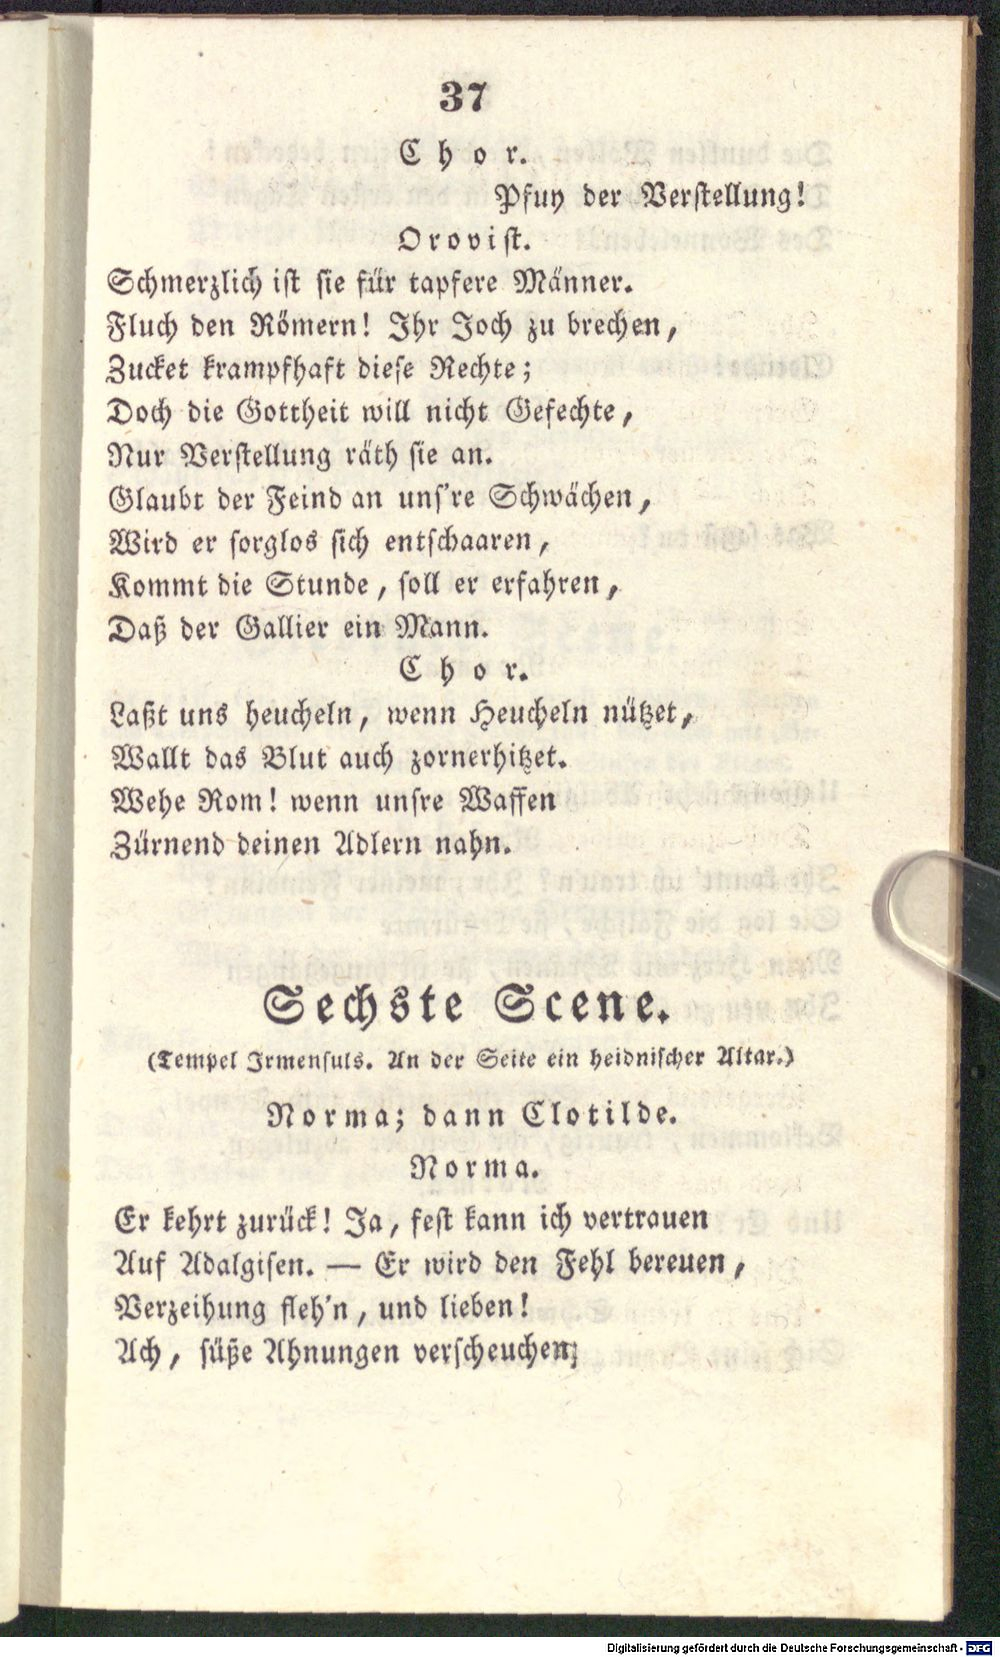 37
Chor.
Pfuy der Verstellung!
Orovist.
Schmerzlich ist sie für tapfere Männer.
Fluch den Römern! Ihr Joch zu brechen,
Zucket krampfhaft diese Rechte;
Doch die Gottheit will nicht Gefechte,
Nur Verstellung räth sie an.
Glaubt der Feind an uns're Schwächen,
Wird er sorglos sich entschaaren,
Kommt die Stunde, soll er erfahren,
Daß der Gallier ein Mann.
Chor.
Laßt uns heucheln, wenn Heucheln nützet,
Wallt das Blut auch zornerhitzet.
Wehe Rom! wenn unsre Waffen
Zürnend deinen Adlern nahn.
Sechste Scene.
(Tempel Irmensuls. An der Seite ein heidnischer Altar.)
Norma; dann Clotilde.
Norma.
Er kehrt zurück! Ja, fest kann ich vertrauen
Auf Adalgisen. — Er wird den Fehl bereuen,
Verzeihung fleh'n, und lieben!
Ach, süße Ahnungen verscheuchen;
Digitalisierung gefördert durch die Deutsche Forschungsgemeinschaft - DFG